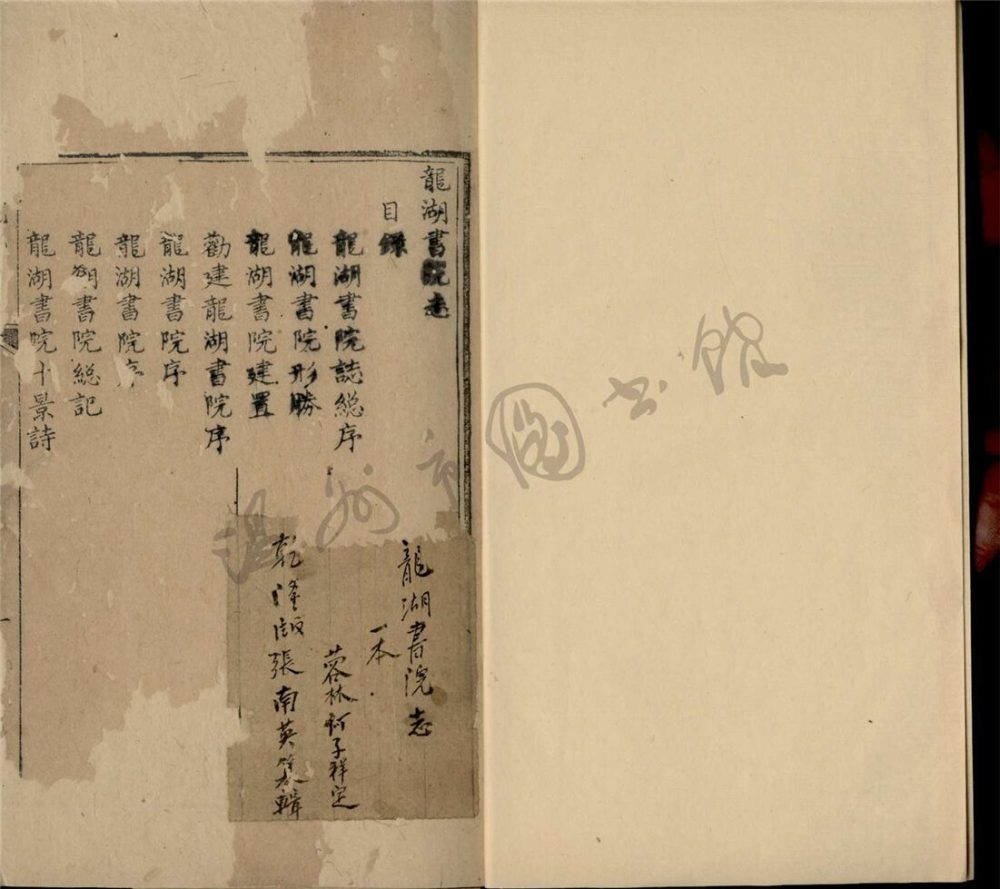 龍湖書院志
目錄
龍湖書院誌総序
龍湖書院形勝
龍湖書院建置
勸建龍湖書院序
龍湖書院序
龍湖書院序
龍湖書院総記
龍湖書院十景詩
龍湖書院志
一本
蓉林何子祥定
乾隆版張南英纂輯
温州市圖书館